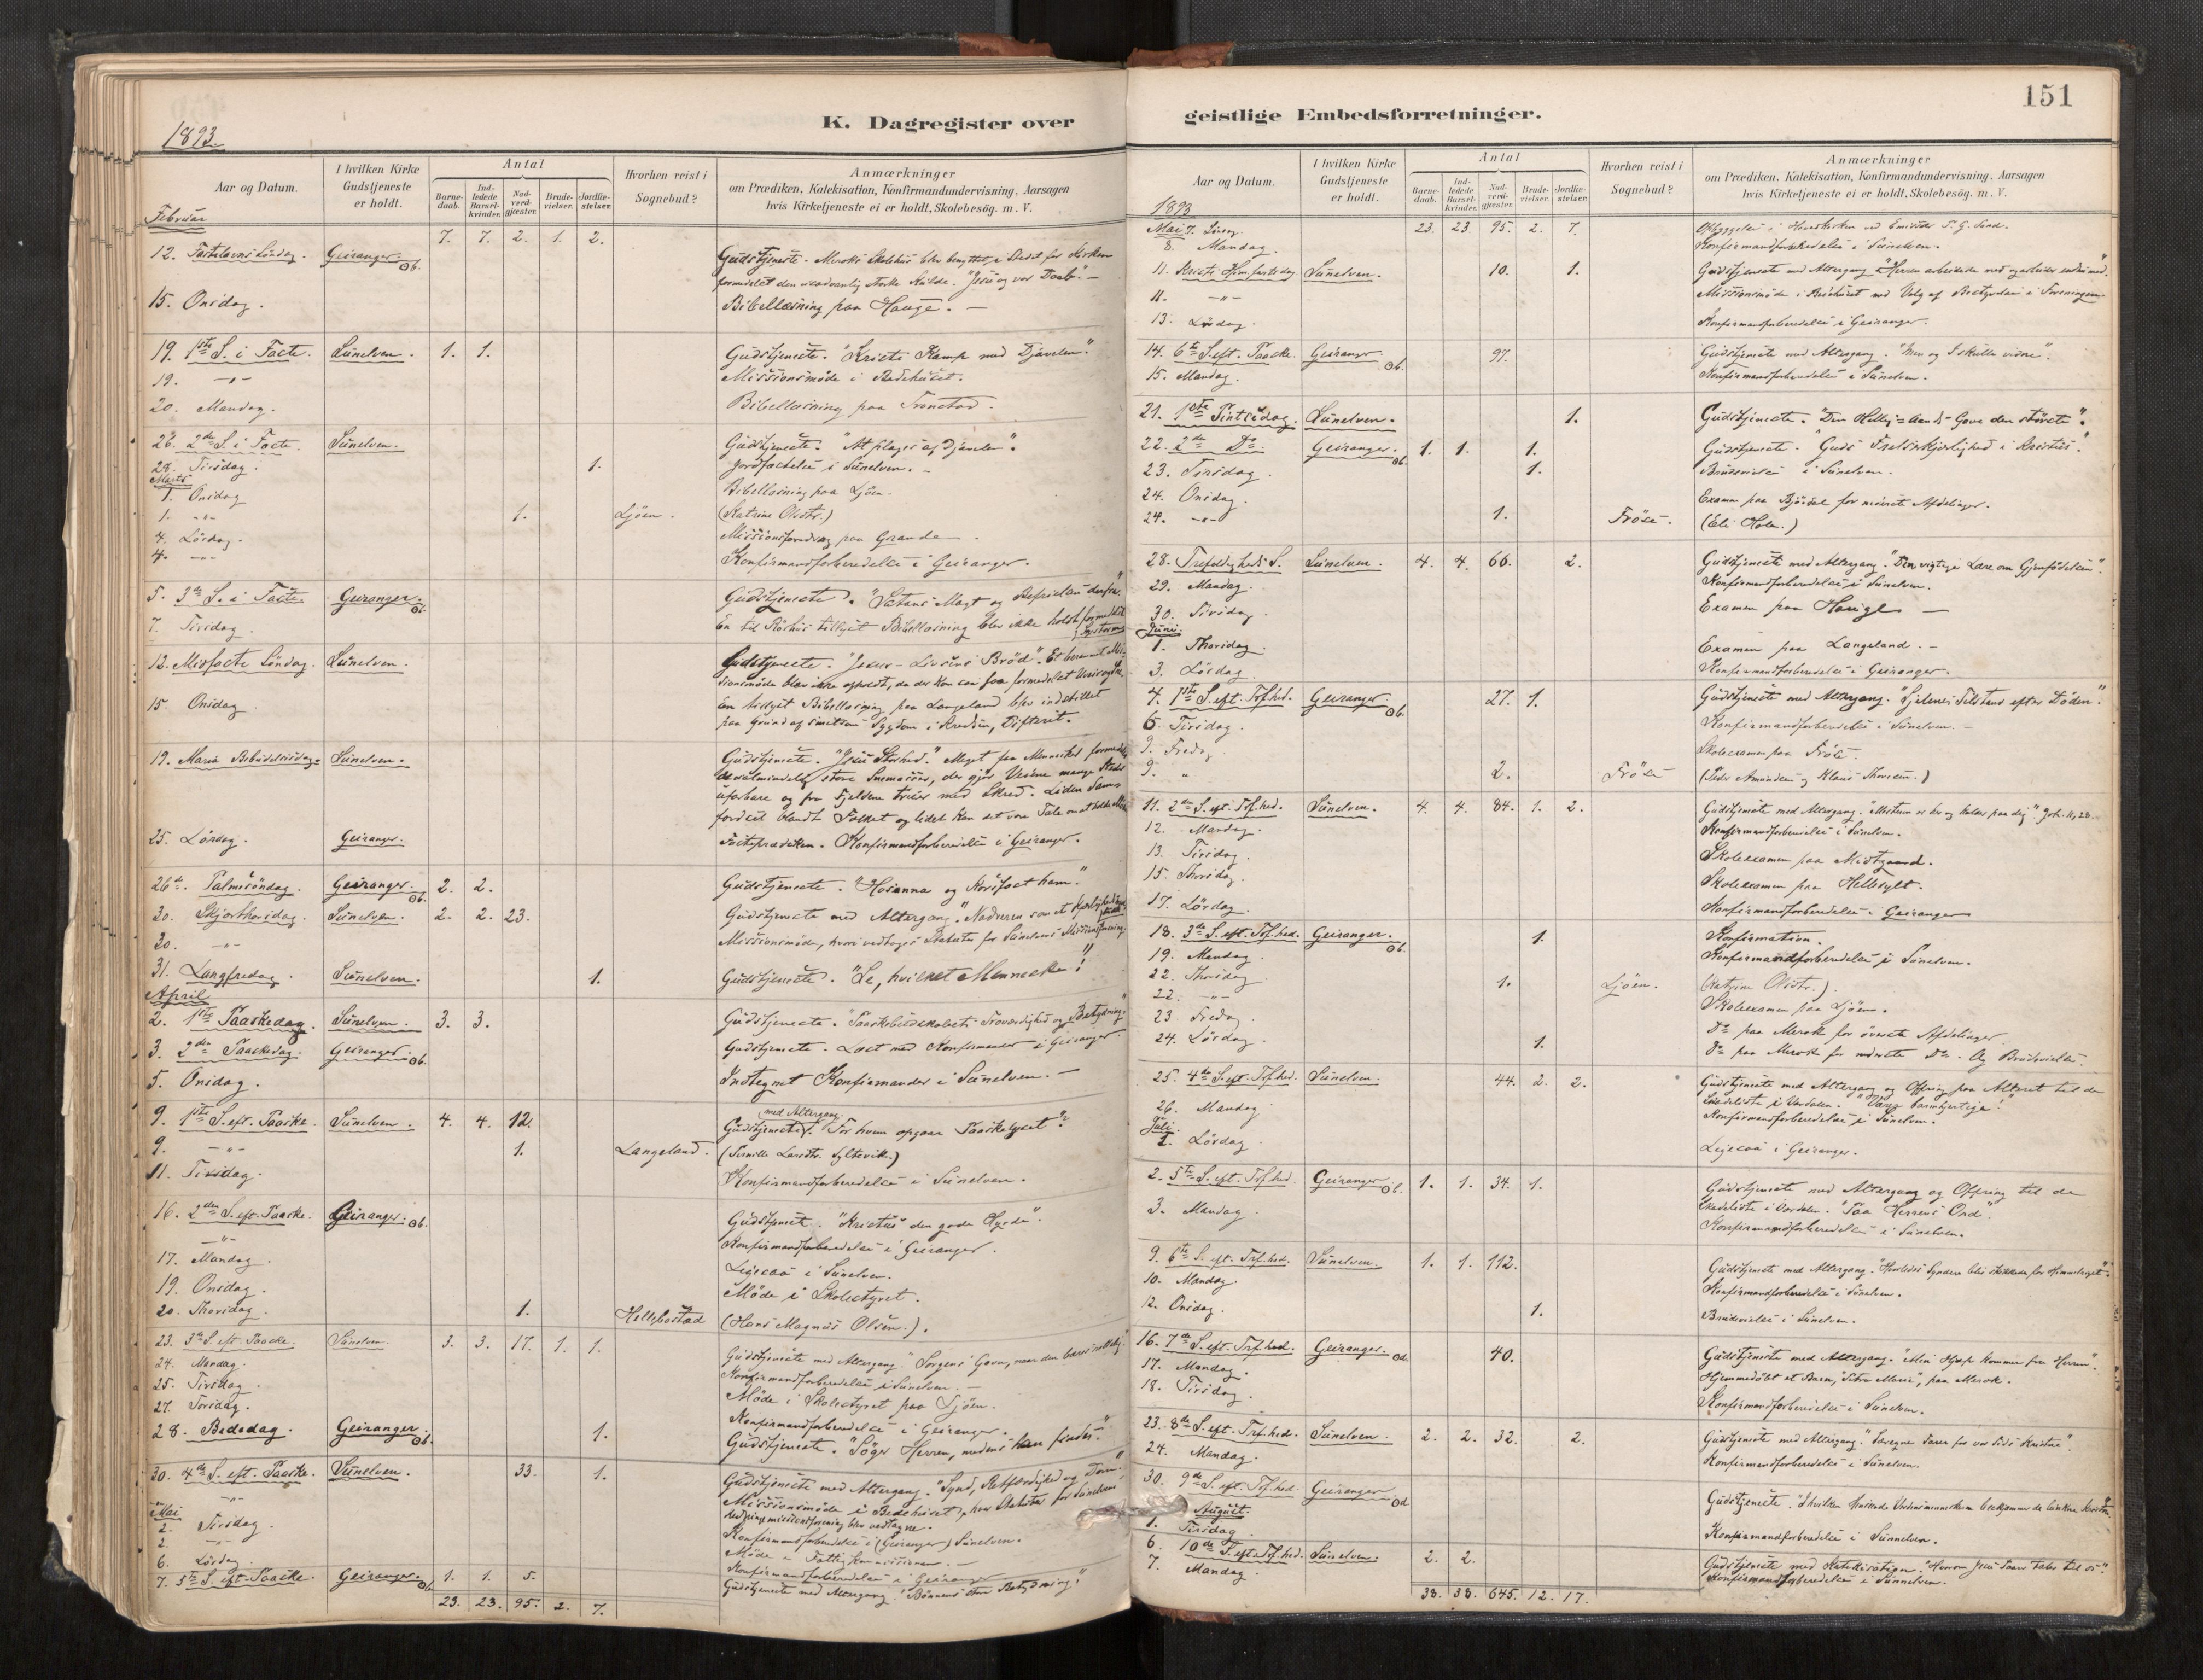 K. Dagregister over
1893.
Aar og Datum.
I hvilken Kirke
Gudstjeneste
er holdt.
Antal
Barne-
daab.
Ind-
ledede
Barsel-
kvinder.
Nad-
verd-
gjæster.
Brude-
vielser.
Jordfæ-
stelser.
Hvorhen reist i
Sognebud?
Anmærkninger
om Prædiken, Katekisation, Konfirmandundervisning, Aarsagen
hvis Kirketjeneste ei er holdt, Skolebesøg. m. V.
Februar
7. 7. 2. 1. 2.
12. Fastelavns Søndag. Geiranger. Gudstjeneste. Meroks Skolehus blev benyttet i Stedet for Kirken
formedelst den usædvanlig stærke Kulde. "Jesu og vor Daab." -
15. Onsdag. Bibellæsning paa Hauge. -
19. 1ste S. i Faste. Sunelven. 1. 1. Gudstjeneste. "Kristi Kamp med Djævelen."
19. -"- Missionsmøde i Bedehuset.
20. Mandag. Bibellæsning paa Tronstad.
26. 2den S. i Faste. Sunelven. Gudstjeneste. "At plages af Djævelen."
28. Tirsdag. 1. Jordfæstelse i Sunelven. -
Marts
1. Onsdag Bibellæsning paa Ljøen.
1. -"- 1. Ljøen. (Katrine Olsdtr.)
4. Lördag. Missionsforedrag paa Grande
4. -"- Konfirmandforberedelse i Geiranger.
5. 3die S. i Faste. Geiranger. Gudstjeneste. "Satans Magt og Befrielsen derfra."
7. Tirsdag. En til Rørhus tillyst Bibellæsning blev ikke holdt formedelst
12. Midfaste Söndag. Sunelven. Gudstjeneste. "Jesus - Livsens Brød". Et berammet Mis-
sionsmøde blev ikke afholdt, da der kom saa faa formedelst
15. Onsdag En tillyst Bibellæsning paa Langeland blev indstillet
paa Grund af smitsom Sygdom i Kredsen, Difterit.
19. Mariæ Bebudelsesdag. Sunelven. Gudstjeneste. "Jesu Storhed". Meget faa Mennesker formedelst
de ualmindelig store Snemasser, der gjør Veiene mange Steder
ufarbare og fra Fjeldene truer med Skred. Liden Sam-
færdsel blandt Folket og lidet kan det være Tale om at holde
25. Lördag. Geiranger. Fasteprædiken. Konfirmandforberedelse i Geiranger.
26de. Palmesöndag. Geiranger. 2. 2. Gudstjeneste. "Hosianna og Korsfæst ham."
30. Skjærthorsdag. Sunelven. 2. 2. 23. Gudstjeneste med Altergang. "Nadveren som et
30. -"- Missionsmøde, hvori vedtoges Statuter for Sunelvens Missionsforening.
31. Langfredag. Sunelven. 1. Gudstjeneste. "Se, hvilket Menneske!"
April
2. 1ste Paaskedag. Sunelven. 3. 3. Gudstjeneste. "Paaskebudskabets Troværdighed og Betydning."
3. 2den Paaskedag. Geiranger. Gudstjeneste. Læst med Konfirmander i Geiranger
5. Onsdag. Indtegnet Konfirmander i Sunelven. -
9. 1ste S. eft. Paaske. Sunelven. 4. 4. 12. Gudstjeneste med Altergang. "For hvem opgaar Paaskelyset"?
9. -"- 1. Langeland. (Pernille Larsdtr. Syltevik.)
11. Tirsdag. Konfirmandforberedelse i Sunelven.
16. 2den S. eft. Paaske. Geiranger. Gudstjeneste. "Kristus den gode Hyrde".
-"- Konfirmandforberedelse i Geiranger.
17. Mandag. Ligesaa i Sunelven.
19. Onsdag. Møde i Skolestyret.
20. Thorsdag. 1. Hellebostad (Hans Magnus Olsen.).
23. 3die S. eft. Paaske. Sunelven. 3. 3. 17. 1. 1. Gudstjeneste med Altergang. "Sorgens Gavn, naar den bæres
24. Mandag. Konfirmandforberedelse i Sunelven. -
25. Tirsdag. Møde i Skolestyret paa Ljøen.
27. Torsdag. Konfirmandforberedelse i Geiranger.
28. Bededag. Geiranger. 1. Gudstjeneste. "Søger Herren, medens han findes."
30. 4de S. eft. Paaske. Sunelven. 33. 1. Gudstjeneste med Altergang. "Synd, Retfærdighed og Dom."
-"- Missionsmøde i Bedehuset, hvor Statuter for Sunelvens
Hedningemissionsforening blev vedtagne.
Mai
2. Tirsdag. Konfirmandforberedelse i (Geiranger) Sunelven.
2. -"- Møde i Fattigkommissionen. -
6. Lördag. Konfirmandforberedelse i Geiranger
7. 5te S. eft. Paaske. Geiranger. 1. 1. 5. Gudstjeneste med Altergang. "Bønnens store Betydning!"
23. 23. 95. 2. 7.
geistlige Embedsforretninger.
151
Aar og Datum.
I hvilken Kirke
Gudstjeneste
er holdt.
Antal
Barne-
daab.
Ind-
ledede
Barsel-
kvinder.
Nad-
verd-
gjæster.
Brude-
vielser.
Jordfæ-
stelser.
Hvorhen reist i
Sognebud?
Anmærkninger
om Prædiken, Katekisation, Konfirmandundervisning, Aarsagen
hvis Kirketjeneste ei er holdt, Skolebesøg. m. V.
1893
Mai 7. Søndag. 23. 23. 95. 2. 7. Opbyggelse i Hovedkirken ved Emissær
8. Mandag. Konfirmandforberedelse i Sunelven.
11. Kristi Himmfartsdag. Sunelven. 10. 1. Gudstjeneste med Altergang. "Herren arbeidede med og arbeider endnu med."
11. -"- Missionsmøde i Bedehuset med Valg af Bestyrelse i Foreningen.
13. Lördag. Konfirmandforberedelse i Geiranger.
14. 6te S. eft. Paaske. Geiranger. 97. Gudstjeneste med Altergang. "Men og I skulle vidne".
15. Mandag. Konfirmandforberedelse i Sunelven.
21. 1ste Pintsedag. Sunelven. 1. Gudstjeneste. "Den Hellig-Aands-Gave den største".
22. 2den Do. Geiranger. 1. 1. 1. Gudstjeneste. "Guds Frelserkjærlighed i Kristus".
23. Tirsdag. 1. Brudevielse i Sunelven.
24. Onsdag. Examen paa Bjørdal for nederste Afdelinger.
24. -"- 1. Frøse. (Eli Hole.)
28. Trefoldigheds S. Sunelven. 4. 4. 66. 2. Gudstjeneste med Altergang. "Den vigtige Lære om Gjenfødelsen".
29. Mandag. Konfirmandforberedelse i Sunelven.
30. Tirsdag. Examen paa Hauge -
Juni.
1. Thorsdag. Examen paa Langeland. -
3. Lördag. Konfirmandforberedelse i Geiranger.
4. 1ste S. eft. Tref.hed. Geiranger. 27. 1. Gudstjeneste med Altergang. "Sjelenes Tilstand efter Døden".
6. Tirsdag. Konfirmandforberedelse i Sunelven. -
9. Fredag. Skoleexamen paa Frøse.
9. " 2. Frøse (Peder Amundsen og Klaus Thoresen.)
11. 2den S. eft. Tref.hed. Sunelven. 4. 4. 84. 1. 2. Gudstjeneste med Altergang. "Mesteren er her og kalder paa dig". Joh. 11, 28.
12. Mandag. Konfirmandforberedelse i Sunelven.
13. Tirsdag. Skoleexamen paa Midtgaard.
15. Thorsdag. Skoleexamen paa Hellesylt.
17. Lördag. Konfirmandforberedelse i Geiranger
18. 3die S. eft. Tref.hed. Geiranger. 1. Konfirmation.
19. Mandag. Konfirmandforberedelse i Sunelven.
22. Thorsdag. 1. Ljøen. (Katrine Olsdtr.).
22. -"- Skoleexamen paa Ljøen.
23 Fredag. Do paa Merok for øverste Afdelinger
24. Lördag. 1. Do paa Merok for nederste Do. Og Brudevielse.
25. 4de S. eft. Tref.hed. Sunelven. 44. 2. 2. Gudstjeneste med Altergang og Offring paa Alteret til de
Skadeliste i Værdalen. "Værer barmhjertige!"
26. Mandag. Konfirmandforberedelse i Sunelven.
Juli.
1. Lördag. Ligesaa i Geiranger.
2. 5te S. eft. Tref.hed. Geiranger. 1. 1. 34. 1. Gudstjeneste med Altergang og Offring til de
Skadeliste i Værdalen. "Paa Herrens Ord".
3. Mandag. Konfirmandforberedelse i Sunelven.
9. 6te S. eft. Tref.hed. Sunelven. 1. 1. 112. Gudstjeneste med Altergang. "Hvorledes Syndere blir skikkede for Himmeriget".
10. Mandag. Konfirmandforberedelse i Sunelven.
12. Onsdag. 1. Brudevielse i Sunelven.
16. 7de S. eft. Tref.hed. Geiranger. 40. Gudstjeneste med Altergang. "Min Hjælp kommer fra Herren".
17. Mandag. Hjemmedøbt et Barn, "Petra Marie", paa Merok.
18. Tirsdag. Konfirmandforberedelse i Sunelven.
23. 8de S. eft. Tref.hed. Sunelven. 2. 2. 32. 2. Gudstjeneste med Altergang. farer for vor Tids Kristne".
24. Mandag. Konfirmandforberedelse i Sunelven.
30. 9de S. eft. Tref.hed. Geiranger. Gudstjeneste. "I hvilken Henseende Verdensmennesker beskjæmmer de
August.
1. Tirsdag. Konfirmandforberedelse i Sunnelven.
6. 10de S. eft. Tref.hed. Sunelven. 2. 2. Gudstjeneste med Katekisation. "Hvorom Jesu Taarer taler til os".
7. Mandag. Konfirmandforberedelse i Sunnelven.
38. 38. 645. 12. 17.